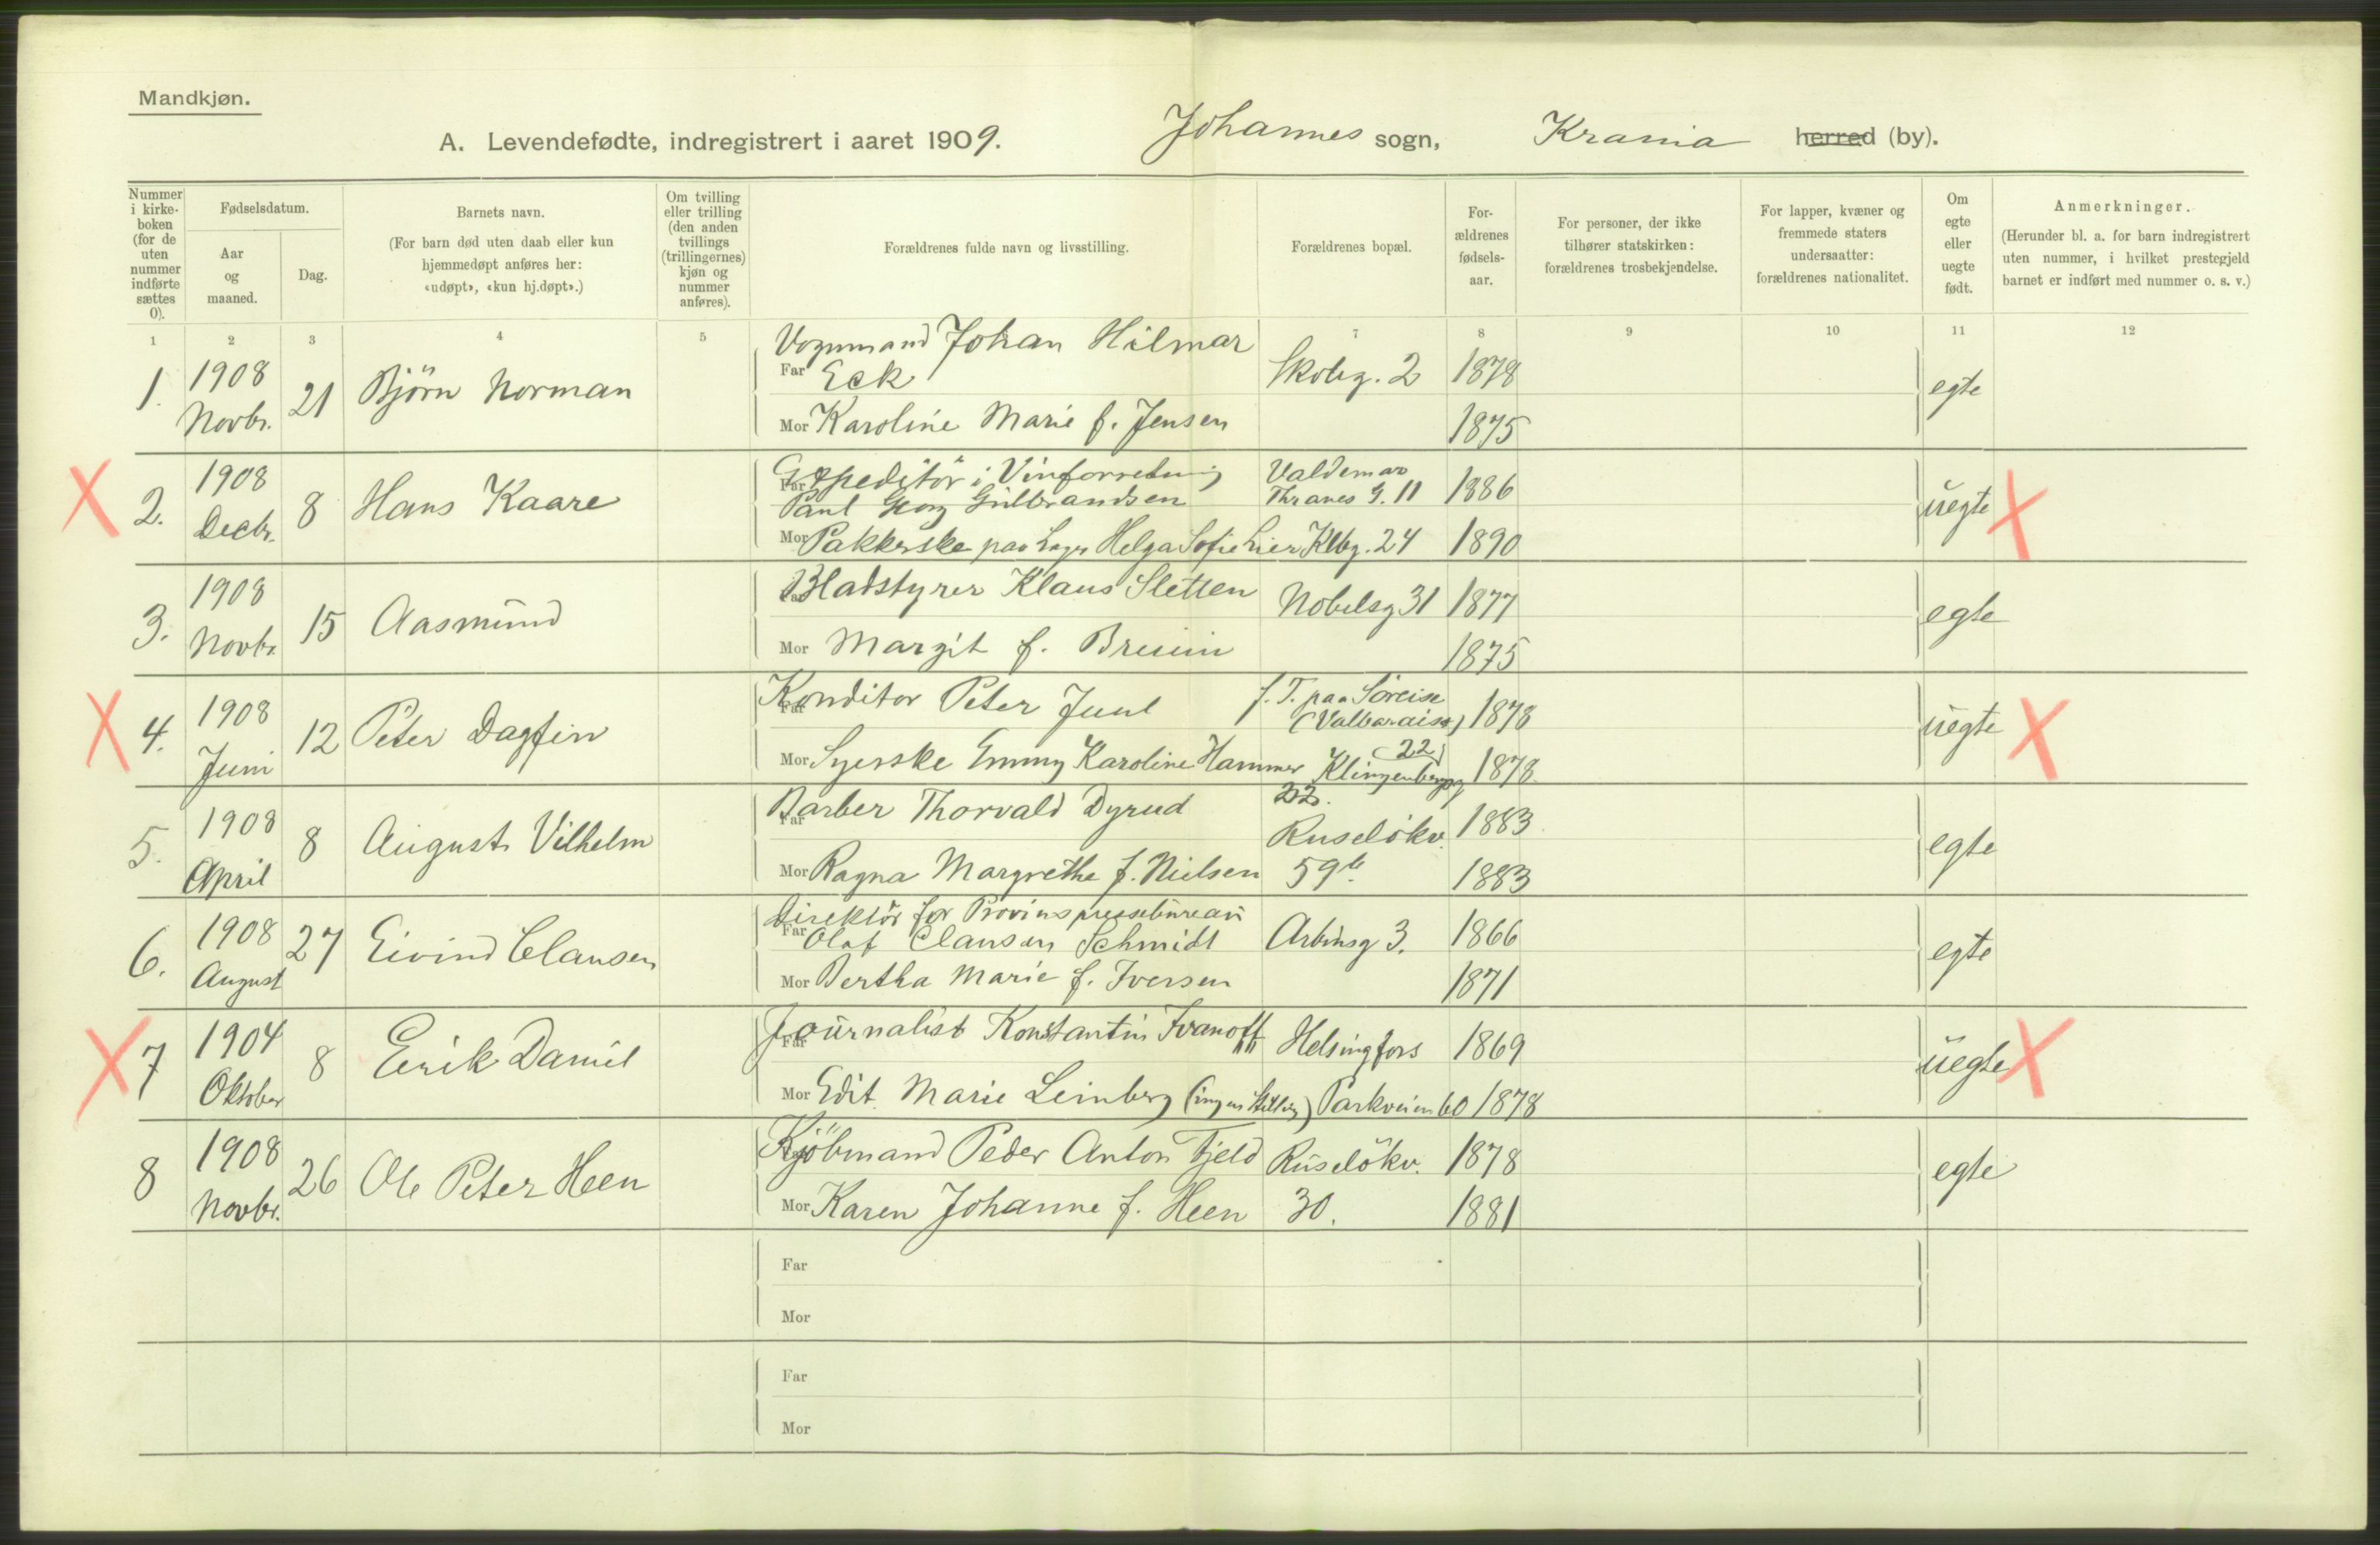 Mandkjøn.
A. Levendefødte, indregistrert i aaret 1909. Johannes sogn, Krania herred (by).
Nummer i kirke-boken (for de uten nummer indførte sættes 0).
Fødselsdatum.
Aar og maaned.
Dag.
Barnets navn.
(For barn død uten daab eller kun hjemmedøpt anføres her: «udøpt», «kun hj.døpt».)
Om tvilling eller trilling (den anden tvillings (trillingernes) kjøn og nummer anføres).
Forældrenes fulde navn og livsstilling.
Forældrenes bopæl.
For-ældrenes fødsels-aar.
For personer, der ikke tilhører statskirken: forældrenes trosbekjendelse.
For lapper, kvæner og fremmede staters undersaatter: forældrenes nationalitet.
Om egte eller uegte født.
Anmerkninger.
(Herunder bl. a. for barn indregistrert uten nummer, i hvilket prestegjeld barnet er indført med nummer o. s. v.)
1 2 3 4 5 7 8 9 10 11 12
1. 1908 Novbr. 21 Björn Norman
Vognmand Johan Hilmar
Far Eck Skobg. 2 1878 egte
Mor Karoline Marie f. Jensen 1875
X 2. 1908 Decbr. 8 Hans Kaare
Far Expeditör i Vinforretning Valdemar
Paul Georg Gulbrandsen Thranes G. 11 1886 uegte X
Mor Pakkerske paa Lager Helga Sofie Lier Klbg. 24 1890
3. 1908 Novbr. 15 Aasmund
Far Bladstyrer Klaus Sletten Nobelsg 31 1877 egte
Mor Margit f. 1875
X 4. 1908 Juni 12 Peter Dagfin
Far Konditor Peter Juul f. T. paa 1878 uegte X
Mor Syerske Emmy Karoline Hammer (22) Klingenbergg 1878
22.
5. 1908 April 8 August Vilhelm
Far Barber Thorvald Dyrud Ruselökv. 1883 egte
Mor Ragna Margrethe f. Nielsen 59b. 1883
6. 1908 August 27 Eivind Clausen
Direktör for Provinspressebureau
Far Olaf Clausen Schmidt Arbinsg 3. 1866 egte
Mor Bertha Marie f. Iversen 1871
X 7 1904 Oktober 8 Erik Daniel
Far Journalist Konstantin Ivanoff Helsingfors 1869 uegte X
Mor Edit Marie Leinberg (ingen Stilling) Parkveien 60 1878
8 1908 Novbr. 26 Ole Peter Heen
Far Kjöbmand Peder Anton Fjeld Ruselökv. 1878 egte
Mor Karen Johanne f. Heen 30. 1881
Far
Mor
Far
Mor